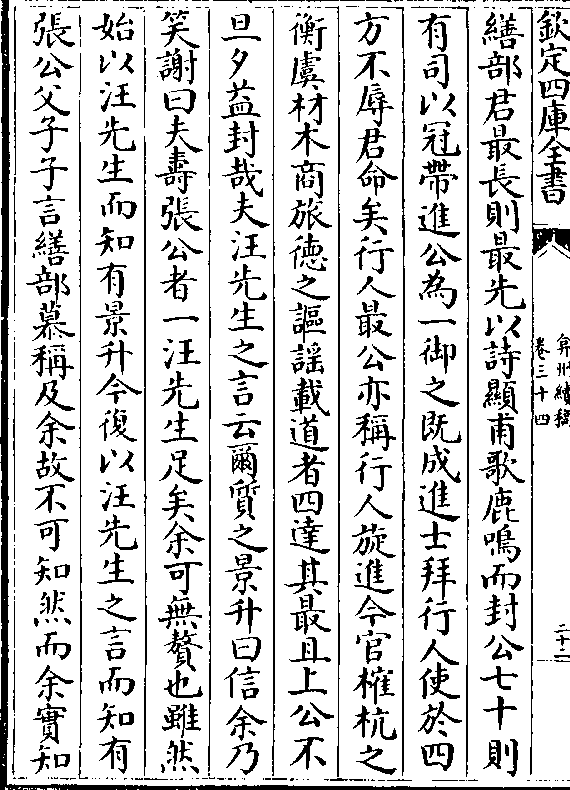 欽定四庫全書
弇州續稿
卷三十四
二十二
繕部君最長則最先以詩顯甫歌鹿鳴而封公七十則
有司以冠帶進公為一御之既成進士拜行人使於四
方不辱君命矣行人最公亦稱行人旋進今官榷杭之
衡虞材木商旅德之謳謡載道者四達其最且上公不
旦夕益封哉夫汪先生之言云爾質之景升曰信余乃
笑謝曰夫壽張公者一汪先生足矣余可無贅也雖然
始以汪先生而知有景升今復以汪先生之言而知有
張公父子子言繕部慕稱及余故不可知然而余實知